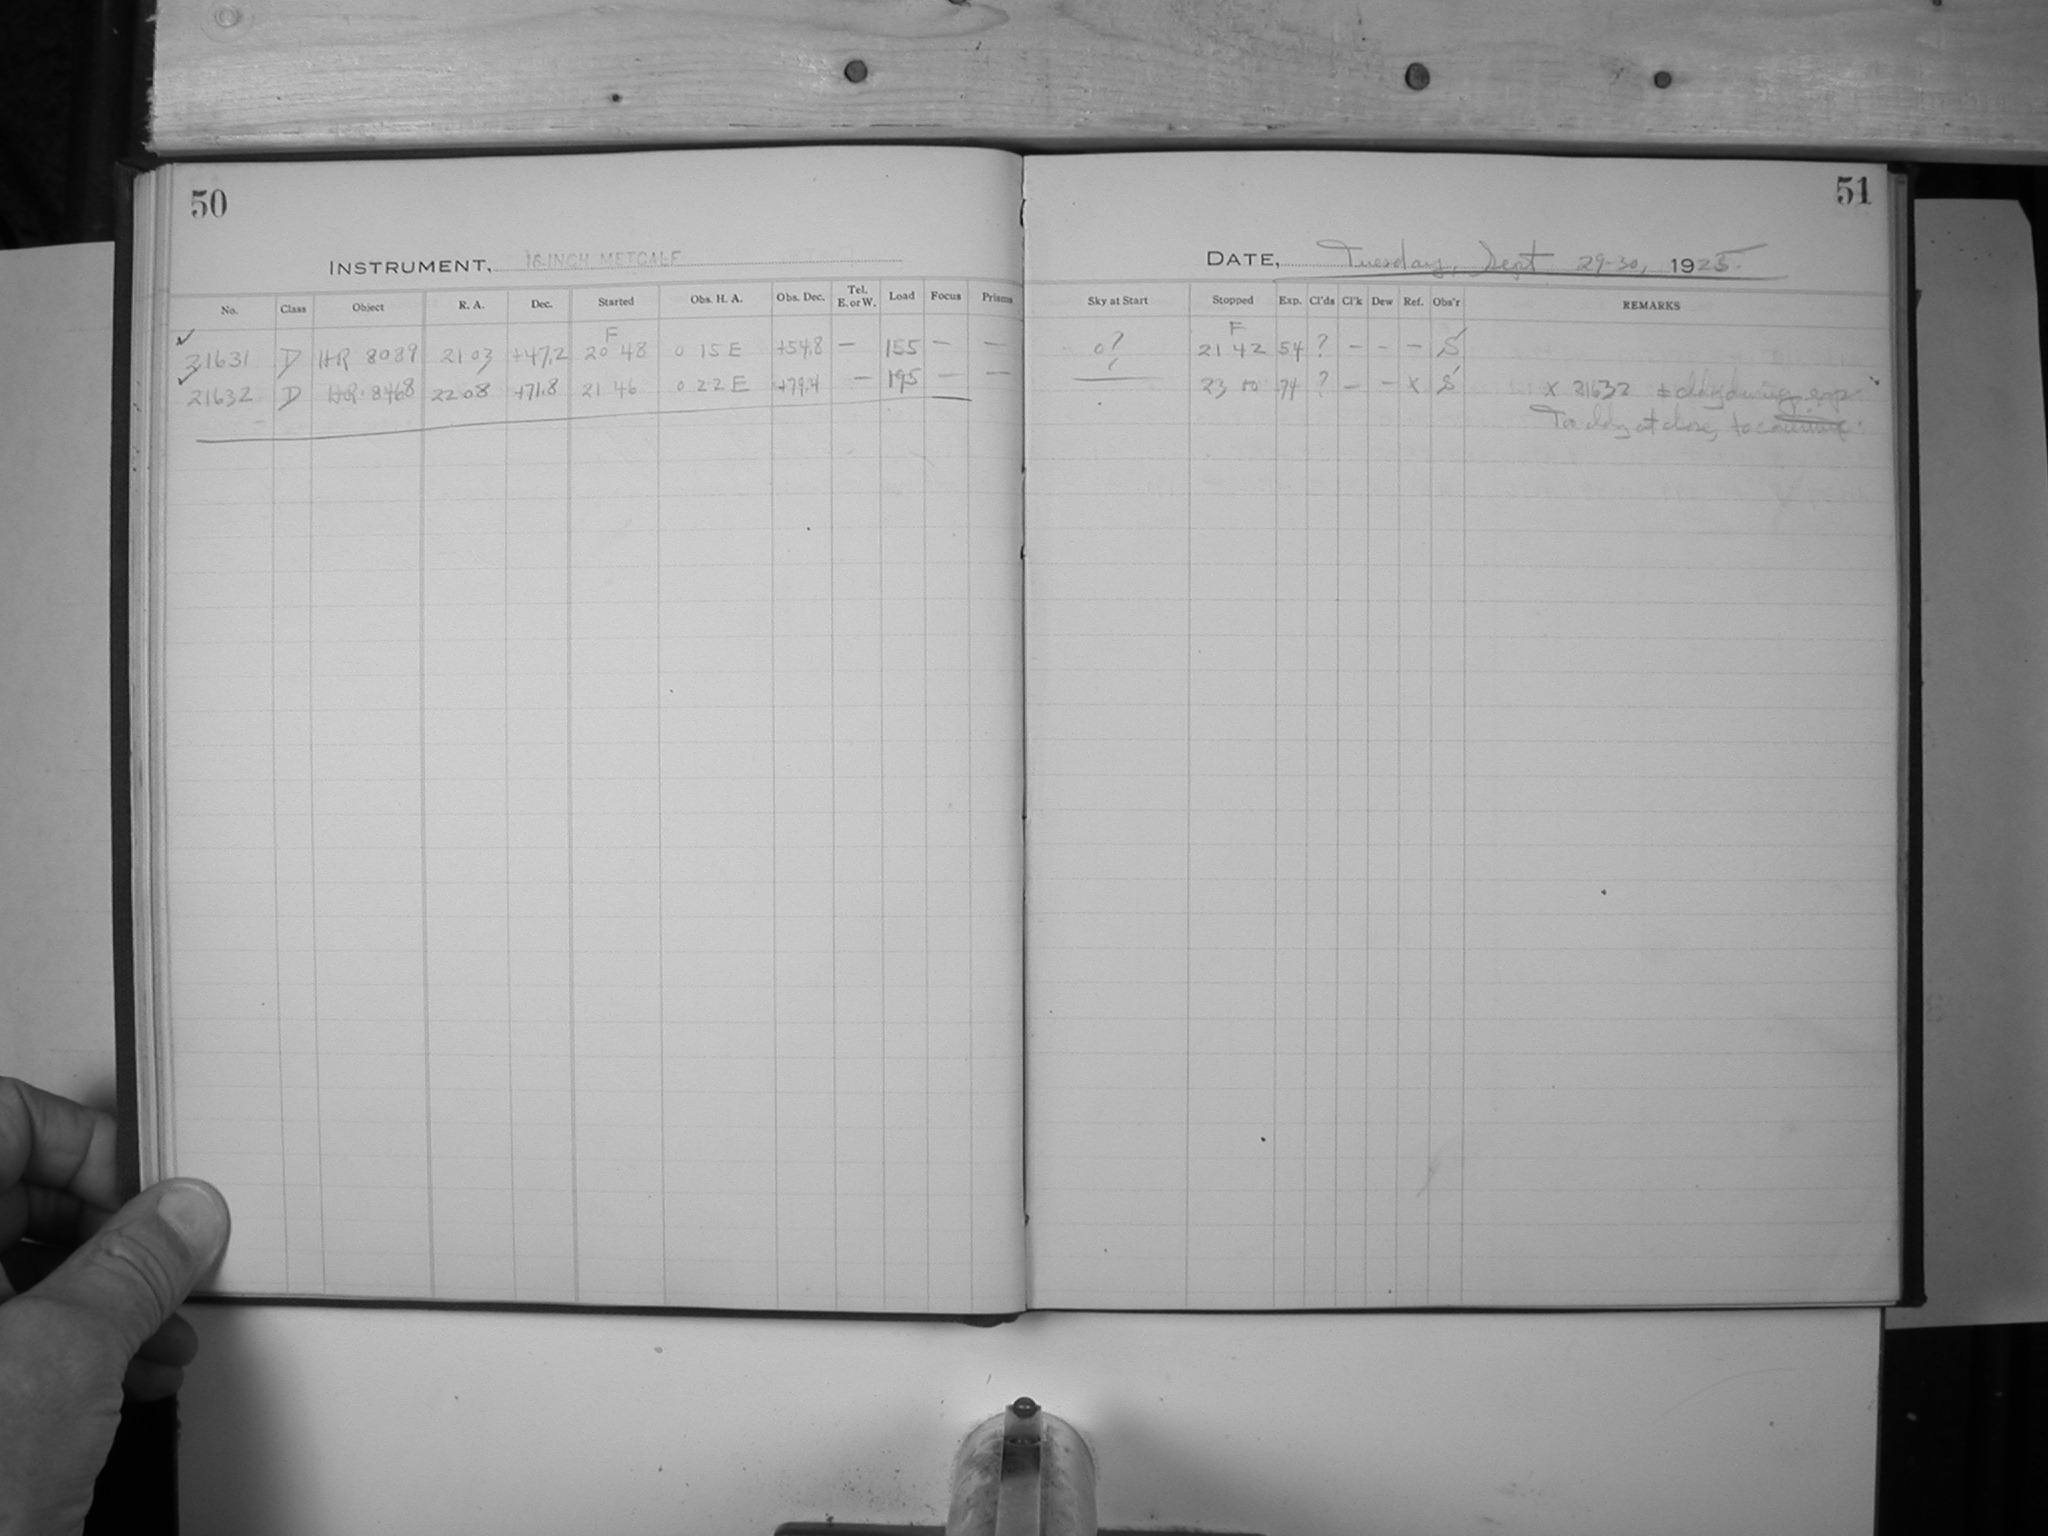 50
INSTRUMENT, 16-INCH METCALF
No. Class Object R. A. Dec. Started Obs. H. A. Obs. Dec. Tel. E. or W. Load Focus Prisms
F
✓ 21631 D HR 8089 21 03 +47.2 20 48 0 15 E +54.8 — 155 — —
✓ 21632 D HR 8468 22 08 +71.8 21 46 0 22 E +79.4 — 195 — —
51
DATE, Tuesday, Sept 29-30, 1925.
Sky at Start Stopped Exp. Cl'ds Cl'k Dew Ref. Obs'r REMARKS
F
0? 21 42 54 ? – – – S
23 00 74 ? – – x S x 21632 ± cldy during exp.
Too cldy at close, to continue.